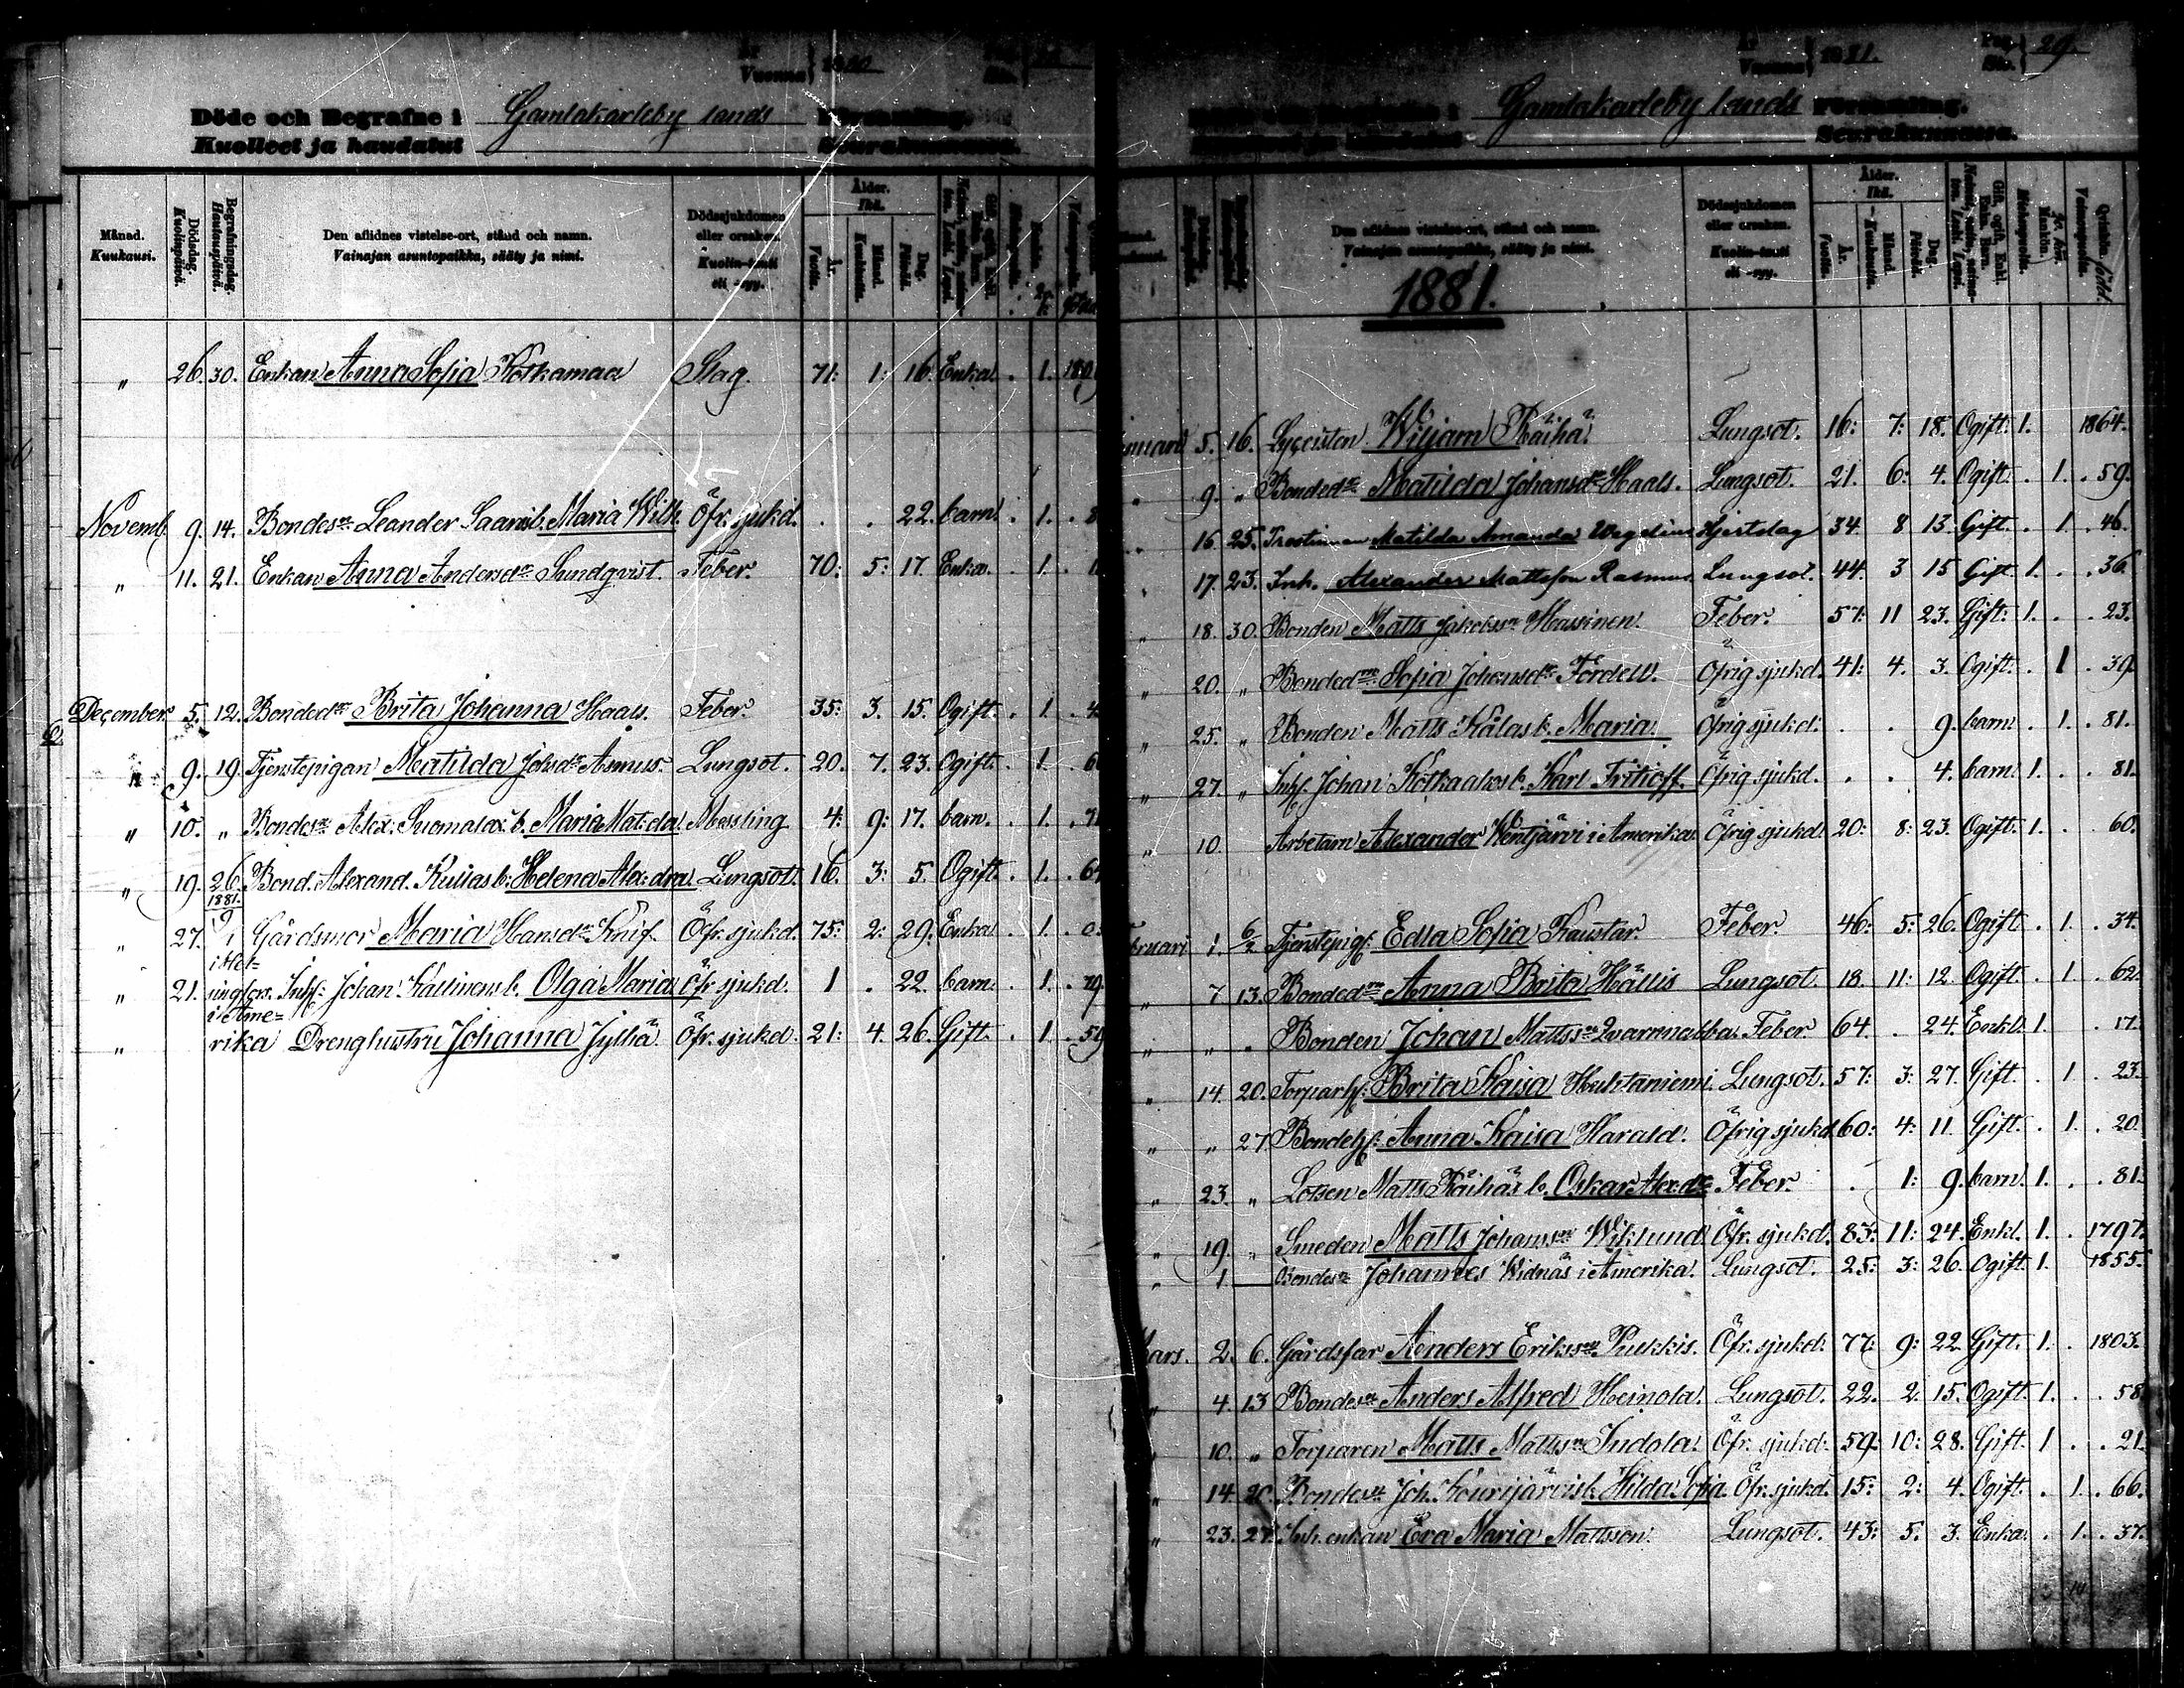 År Vuonna } 1880
Döde och Begrafne i Gamlakarleby lands Församling.
Kuolleet ja haudatut Seurakunnassa.
Månad. Kuukausi. Dödsdag. Kuolinpäivä. Begrafningsdag. Hautauspäivä. Den aflidnes vistelse-ort, stånd och namn. Vainajan asuntopaikka, sääty ja nimi. Dödssjukdomen eller orsaken. Kuolin-tauti eli -syy. Ålder. Ikä. År. Vuotta. Månad. Kuukautta. Dag. Päivää.
" 26. 30. Enkan Anna Sofia Kotkamaa Slag. 71: 1: 16. Enka. . 1. 180
Novemb. 9. 14. Bondes. Leander Saaris b. Maria Wilh. Öfr. sjukd. . . 22. barn. . 1. . 8
" 11. 21. Enkan Anna Andersdr Sundqvist. Feber. 70: 5: 17. Enka. . 1.
December. 5. 12. Bondedr Brita Johanna Haals. Feber. 35: 3. 15. Ogift. . 1. . 4
" 9. 19. Tjenstepigan Matilda Johsdr Asmus. Lungsot. 20. 7. 23. Ogift. . 1. . 6
" 10. " Bondes. Alex. Suomalax b. Maria Mat:da. Messling 4: 9: 17. barn. . 1. . 7
" 19. 26. Bond. Alexand. Kullas b. Helena Alex:dra. Lungsot. 16. 3: 5. Ogift. . 1. . 6
1881.
" 27. 9/1 Gårdsmor Maria Hansdr Knif. Öfr. sjukd. 75: 2: 29. Enka. . 1. . 0
i Hel=
" 21. singfors. Inh: Johan Kallinens b. Olga Maria Öfr. sjukd. 1 . 22. barn. . 1. . 79
i Ame=
" rika Drenghustru Johanna Jylhä Öfr. sjukd. 21: 4. 26. Gift. . 1. . 59
År Vuonna } 1881. Pag. Siv. } 29.
Gamlakarleby lands Församling.
Seurakunnassa.
Den aflidnes vistelse-ort, stånd och namn. Vainajan asuntopaikka, sääty ja nimi. Dödssjukdomen eller orsaken. Kuolin-tauti eli -syy. Ålder. Ikä. År. Vuotta. Månad. Kuukautta. Dag. Päivää.
1881.
nuari 5. 16. Lyceisten Wiljam Räihä. Lungsot. 16: 7: 18. Ogift. 1. 1864.
" 9. " Bondedr Matilda Johansdr Haals. Lungsot. 21. 6: 4. Ogift. . 1. . 59.
" 16. 25. Prostinnan Matilda Amanda Wegelius Hjertslag 34. 8 13. Gift. . 1. . 46.
" 17. 23. Inh. Alexander Mattsson Rasmus. Lungsot. 44. 3 15 Gift 1. . . 36.
" 18. 30. Bonden Matts Jakobss. Hassinen. Feber. 57: 11 23. Gift. 1. . . 23.
" 20. " Bondedr Sofia Johansdr Fordell. Öfrig sjukd. 41: 4. 3. Ogift. . 1 . 39.
" 25. " Bonden Matts Kålas b. Maria. Öfrig sjukd. . . 9. barn. . 1. . 81.
" 27. " Inh: Johan Kotkaahos b. Karl Fritioff. Öfrig sjukd. . . 4. barn. 1. . . 81.
" 10. Arbetarn Alexander Wentjärvi i Amerika. Öfrig sjukd. 20: 8: 23. Ogift. 1. . 60.
bruari 1. 6/2 Tjenstepig: Edla Sofia Kaustar. Feber. 46: 5: 26. Ogift. . 1. . 34.
" 7 13. Bondedr Anna Brita Hällis Lungsot. 18. 11: 12. Ogift. . 1 . 62.
" " " Bonden Johan Mattss. Qvarnnabba. Feber. 64. . 24. Enkl. 1. . 17.
" 14. 20. Torparh: Brita Kaisa Huhtaniemi. Lungsot. 57: 3: 27. Gift. . 1 . 23.
" " 27. Bondeh: Anna Kaisa Harald. Öfrig sjukd. 60: 4: 11. Gift. . 1. . 20.
" 23. " Lotsen Matts Räihäs b. Oskar Alexdr Feber. . 1: 9. barn. 1. . . 81.
" 19. " Smeden Matts Johanss. Wiklund Öfr. sjukd. 83: 11: 24. Enkl. 1. . 1797.
" 1. — Bondes. Johannes Widnäs i Amerika. Lungsot. 25: 3: 26. Ogift. 1. 1855.
Mars. 2. 6. Gårdsfar Anders Erikss. Pukkis. Öfr. sjukd. 77: 9: 22. Gift. 1. . 1803.
" 4. 13 Bondes. Anders Alfred Heinola. Lungsot. 22. 2. 15. Ogift. 1. . . 58.
" 10. " Torparen Matts Mattss. Indola. Öfr. sjukd. 59: 10: 28. Gift. 1 . . 21.
" 14. 20. Bondes. Joh. Kourijärvis b. Hilda Sofia. Öfr. sjukd. 15: 2: 4. Ogift. . 1. . 66.
" 23. 27. Inh. enkan Eva Maria Mattsson. Lungsot. 43: 5. 3. Enka. . 1. . 37.